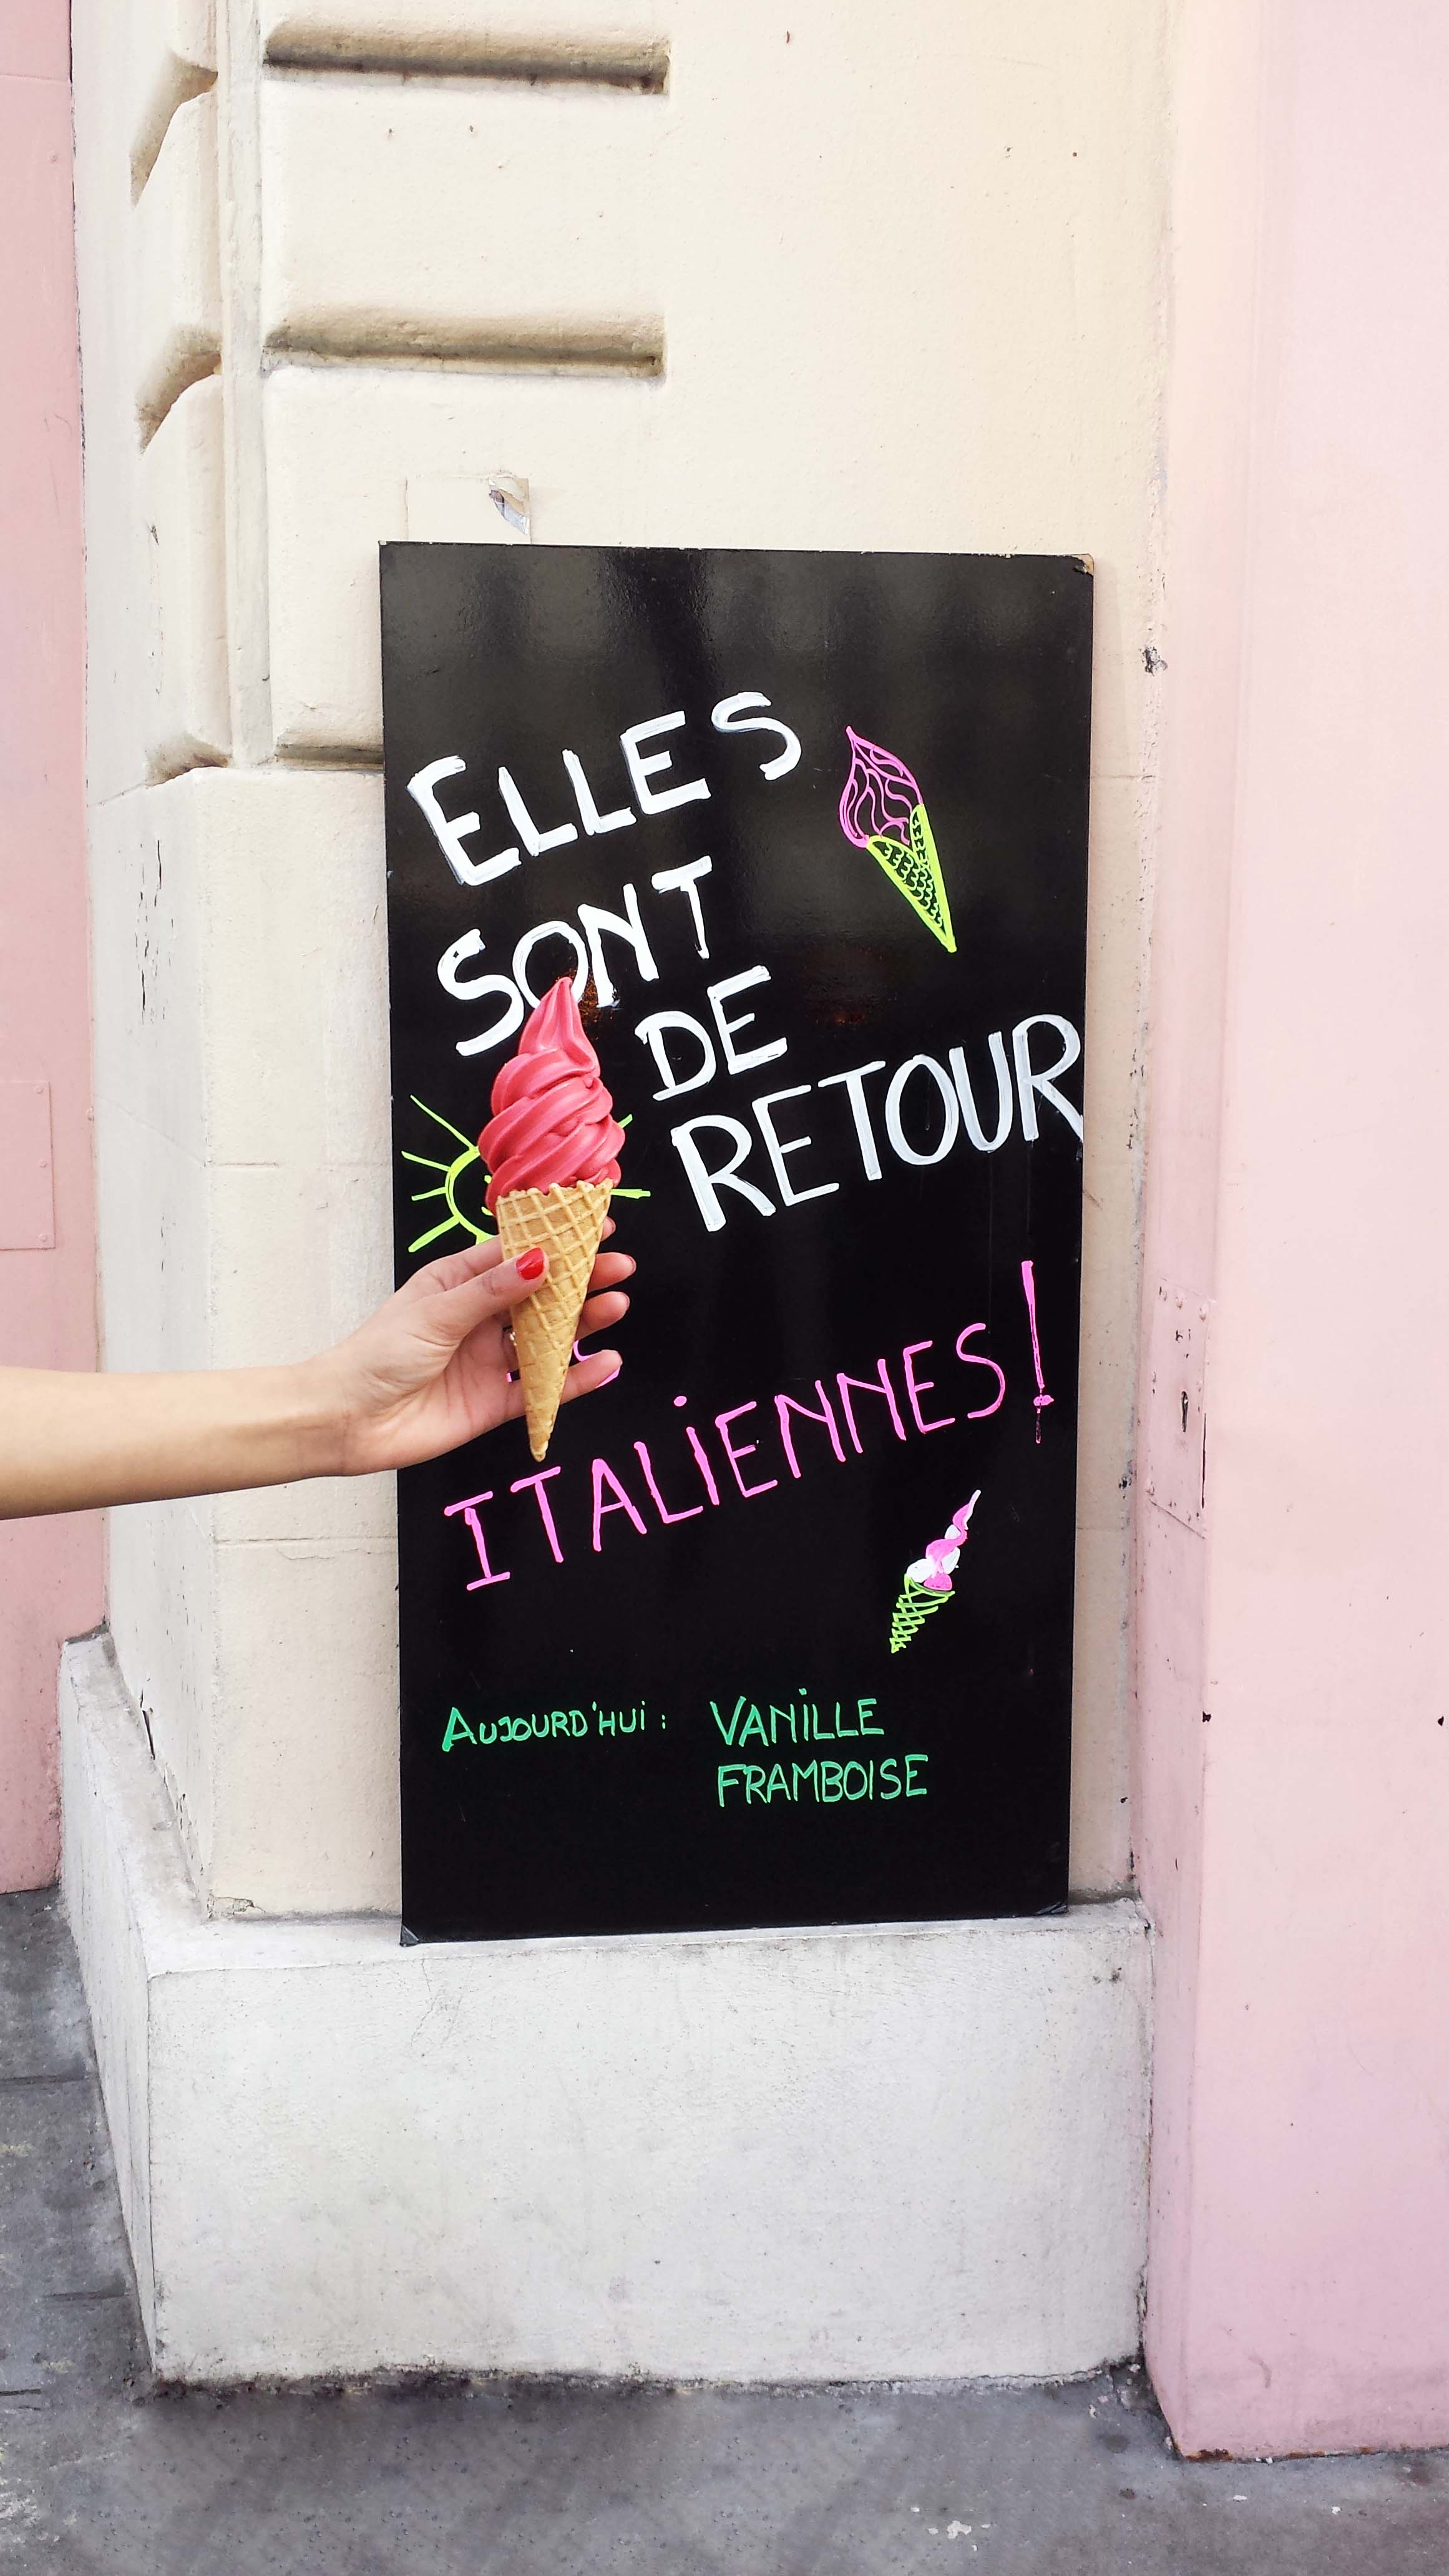 ELLES
SONT
DE
RETOUR
ITALIENNES!
AUJOURD'HUI : VANILLE
FRAMBOISE